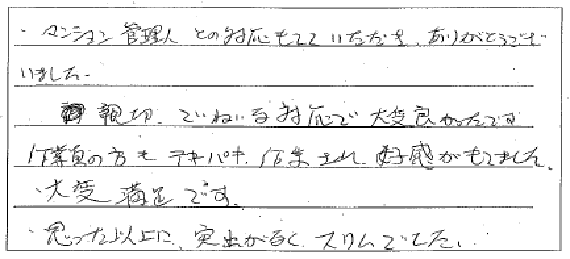 ・マンション管理人との対応もして いただき、ありがとうござ
いました。
親切、ていねいな対応で 大変良かったです
作業員の方も テキパキ 作業され 好感がもてました、
・大変 満足です。
・思った以上に、突出がなく スリムでした、